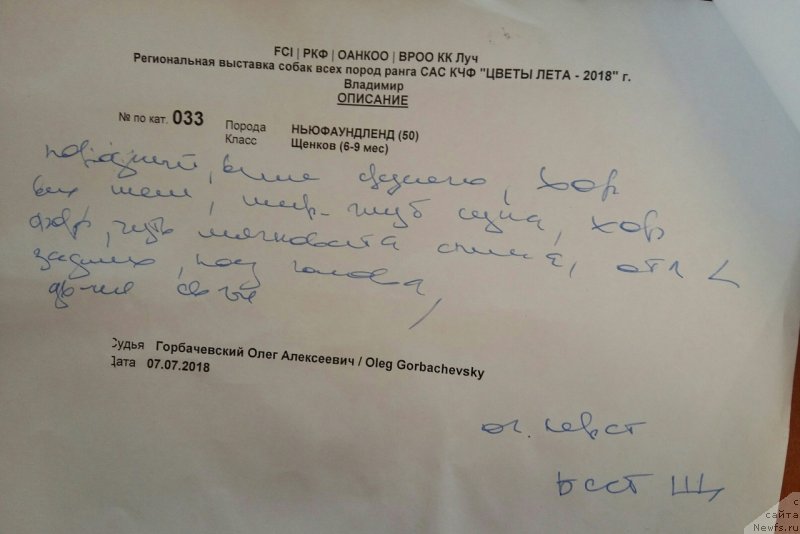 FCI | РКФ | ОАНКОО | ВРОО КК Луч
Региональная выставка собак всех пород ранга САС КЧФ "ЦВЕТЫ ЛЕТА - 2018" г.
Владимир
ОПИСАНИЕ
№ по кат. 033
Порода НЬЮФАУНДЛЕНД (50)
Класс Щенков (6-9 мес)
породный, выше среднего, хор
шеи, шир-глуб, хор
чуть мягковата спина, отл L
задних, голова,
Судья Горбачевский Олег Алексеевич / Oleg Gorbachevsky
Дата 07.07.2018
оч. перст
бест Щ
с
сайта
Newfs.ru